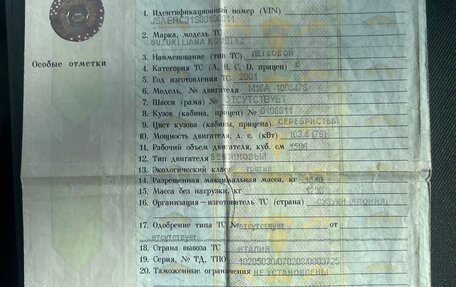 1. Идентификационный номер (VIN)
2. Марка, модель ТС
SUZUKI LIANA
Особые отметки
3. Наименование (тип ТС) ЛЕГКОВОЙ
4. Категория ТС (A, B, C, D, прицеп) B
5. Год изготовления ТС 2001
6. Модель, № двигателя M16A
7. Шасси (рама) № ОТСУТСТВУЕТ
8. Кузов (кабина, прицеп) №
9. Цвет кузова (кабины, прицепа) СЕРЕБРИСТЫЙ
10. Мощность двигателя, л. с. (кВт) 103.4 (76)
11. Рабочий объем двигателя, куб. см 1586
12. Тип двигателя БЕНЗИНОВЫЙ
13. Экологический класс
14. Разрешенная максимальная масса, кг
15. Масса без нагрузки, кг 1200
16. Организация—изготовитель ТС (страна) СУЗУКИ ЯПОНИЯ
17. Одобрение типа ТС № отсутствует от
отсутствует
18. Страна вывоза ТС ИТАЛИЯ
19. Серия, № ТД, ТПО
20. Таможенные ограничения НЕ УСТАНОВЛЕНЫ